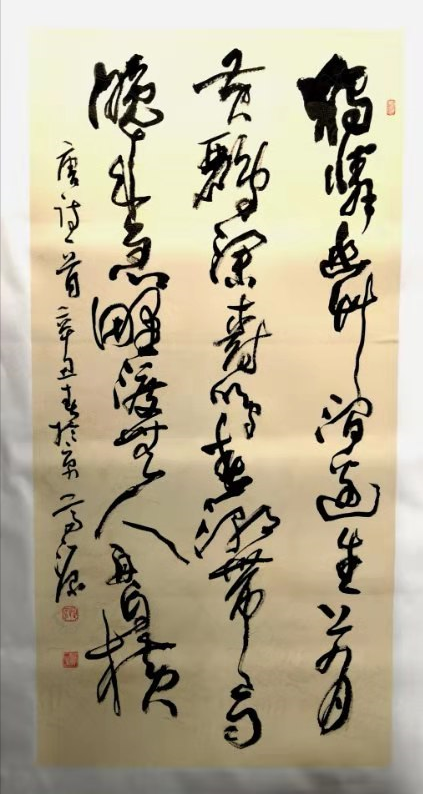 獨憐幽艸澗邊生上有
黃鸝深樹鳴春潮帶雨
晚來急野渡無人舟自橫
唐詩一首辛丑春於京